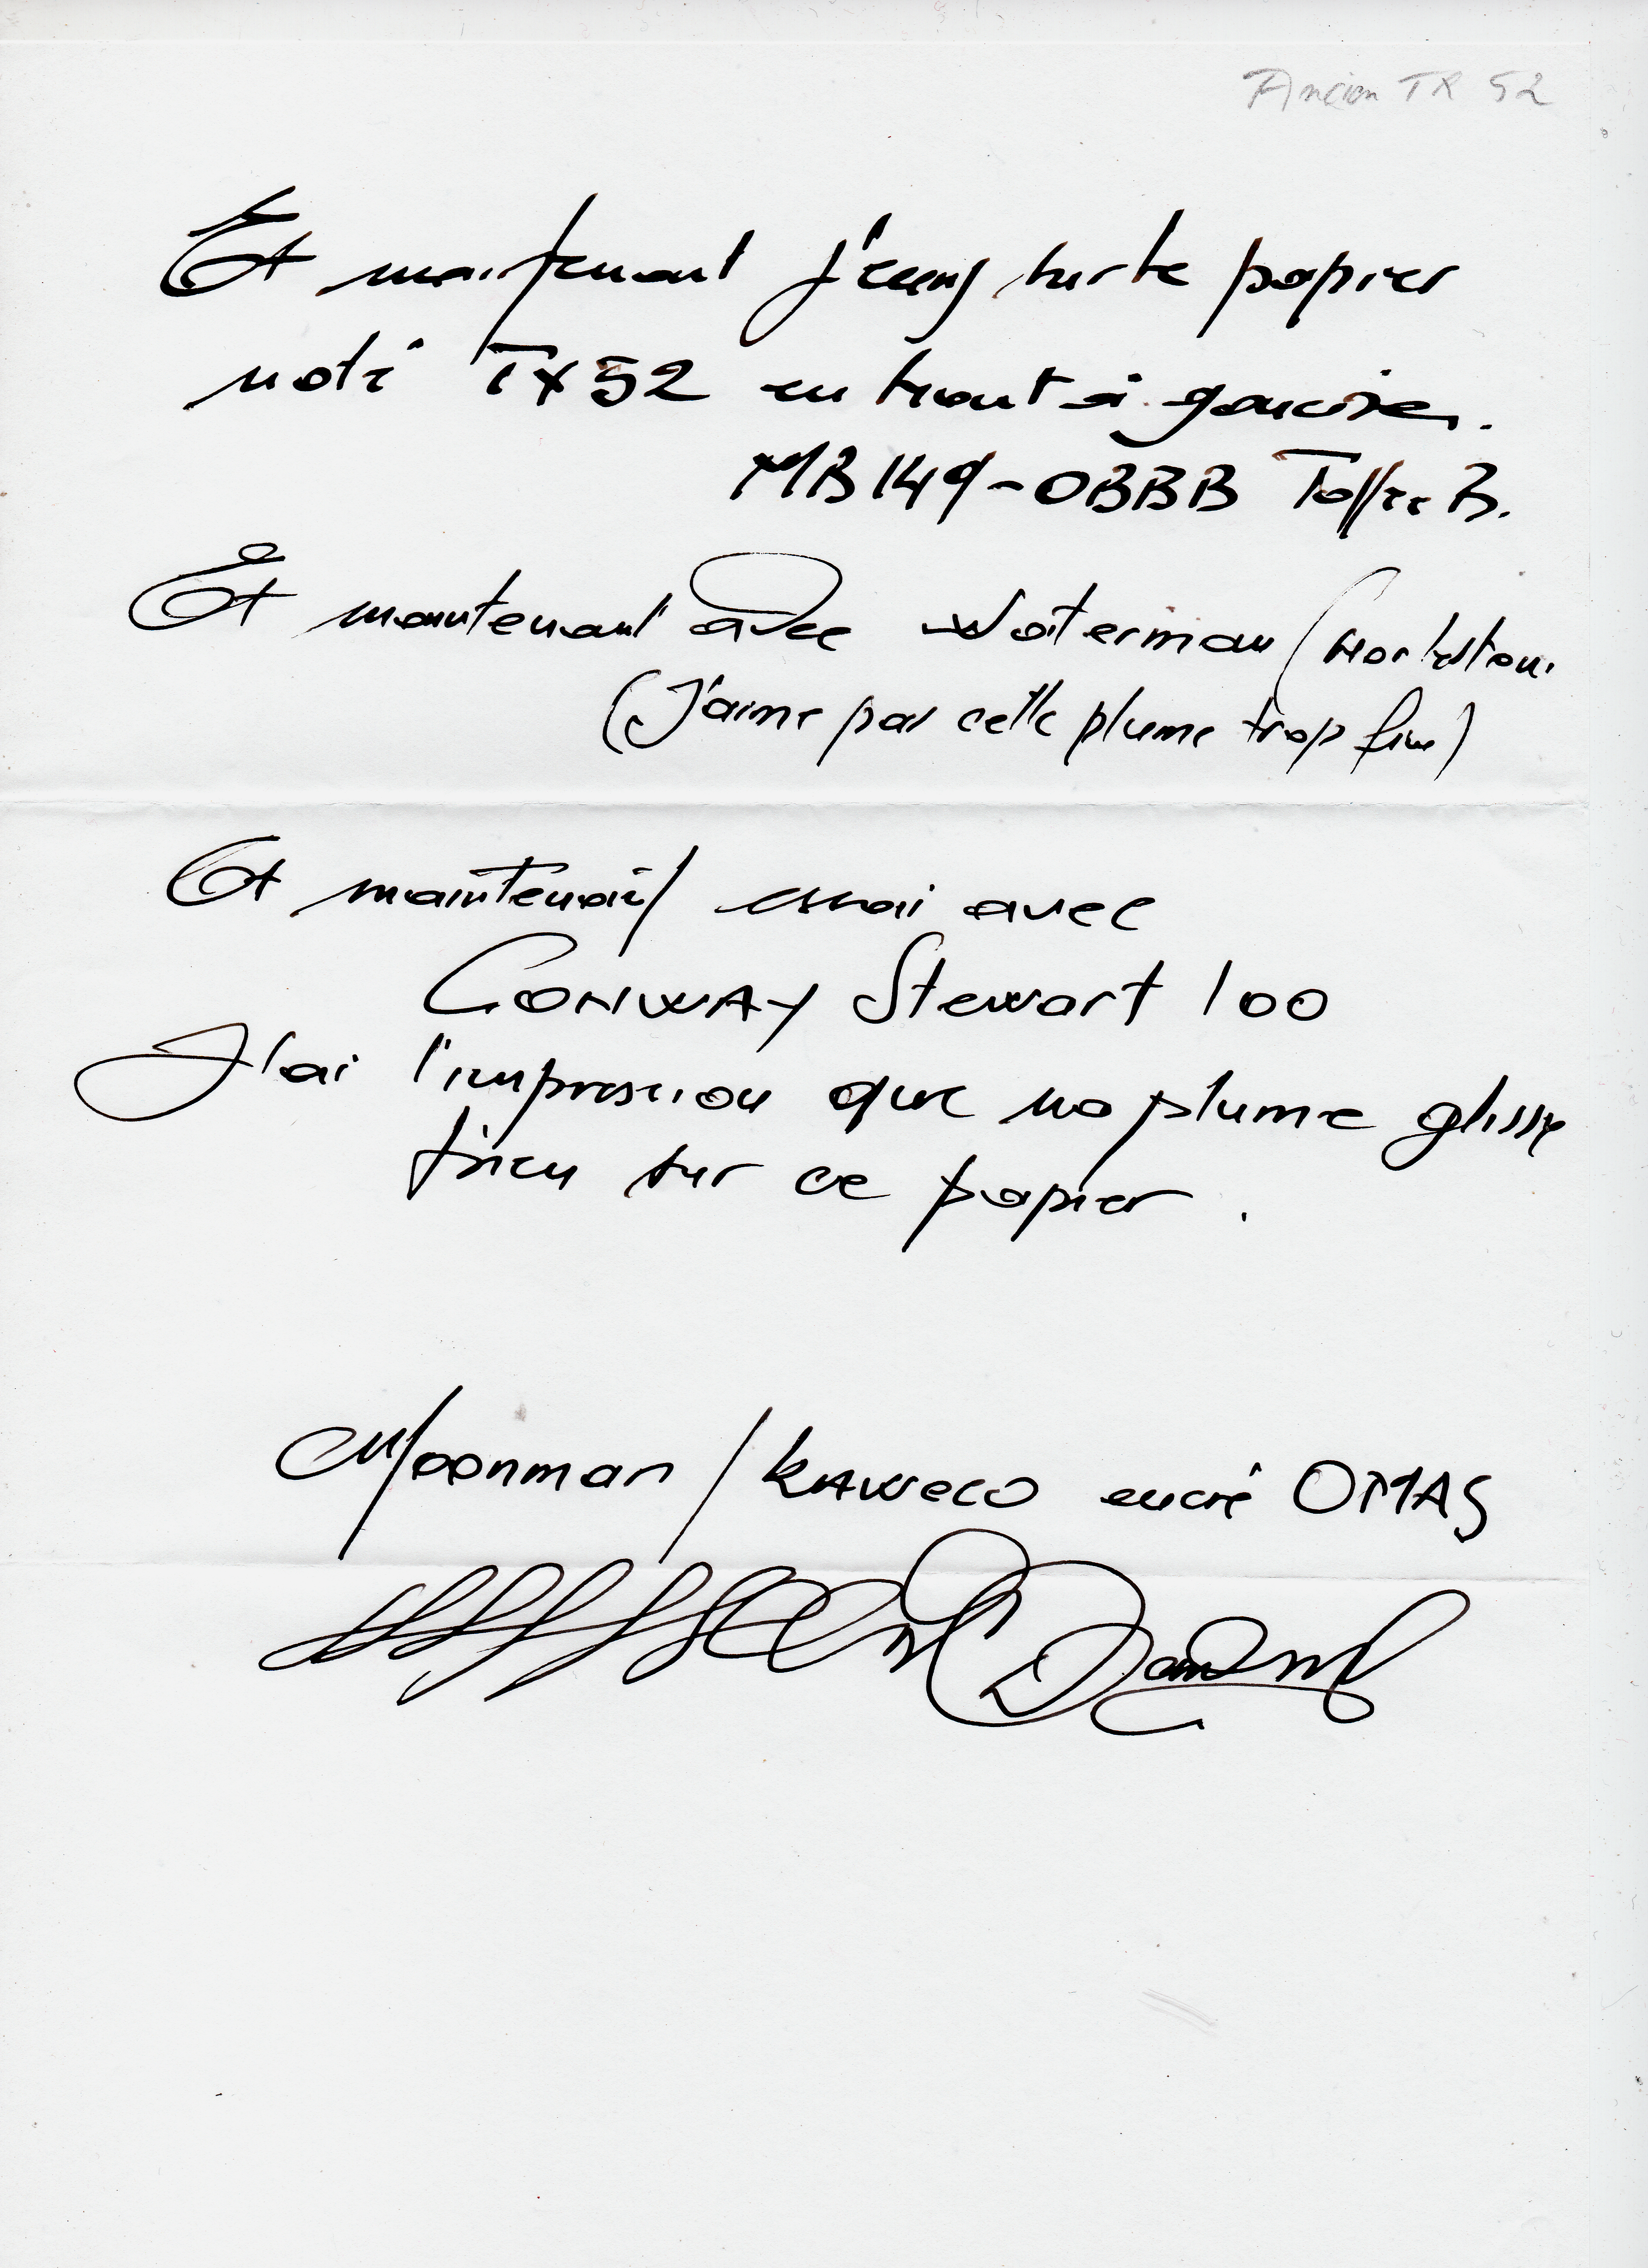 Ancien TR 52
Et maintenant j'écris sur le papier
noté TX52 en haut à gauche.
MB149-OBBB Toffee B.
Et maintenant avec Waterman
(J'aime pas cette plume trop fine)
Et maintenant essai avec
CONWAY Stewart 100
J'ai l'impression que ma plume glisse
bien sur ce papier.
Moonman / KAWECO encré OMAS